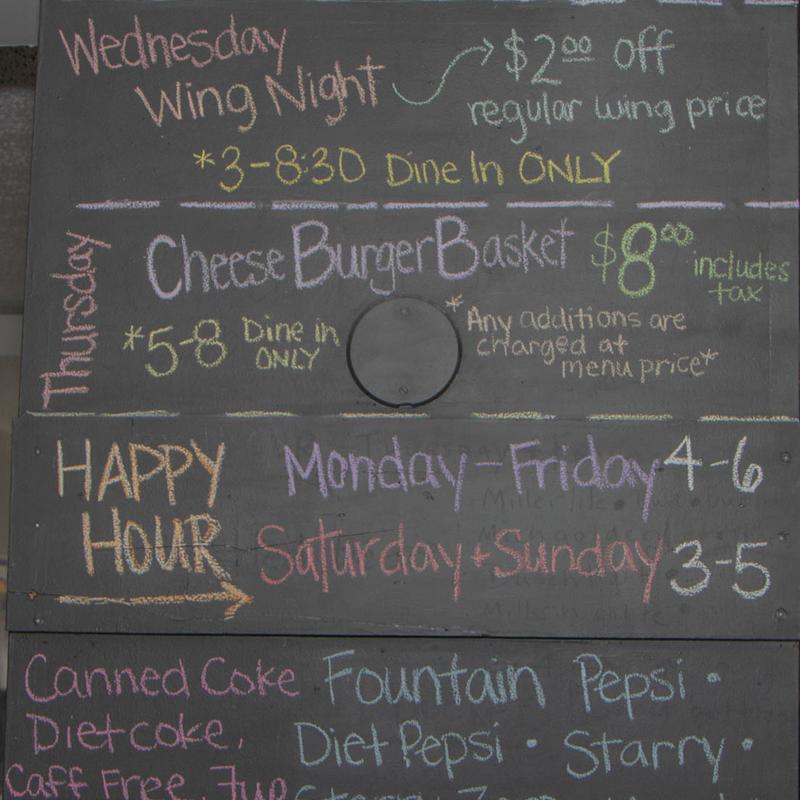 Wednesday
Wing Night
$2.00 off
regular wing price
*3-8:30 Dine In ONLY
Thursday
Cheese Burger Basket $8.00 includes
tax
*5-8 Dine in
ONLY
*Any additions are
charged at
menu price*
HAPPY
HOUR
Monday-Friday 4-6
Saturday+Sunday 3-5
Canned Coke
Diet coke,
Caff Free, 7up
Fountain Pepsi •
Diet Pepsi • Starry •